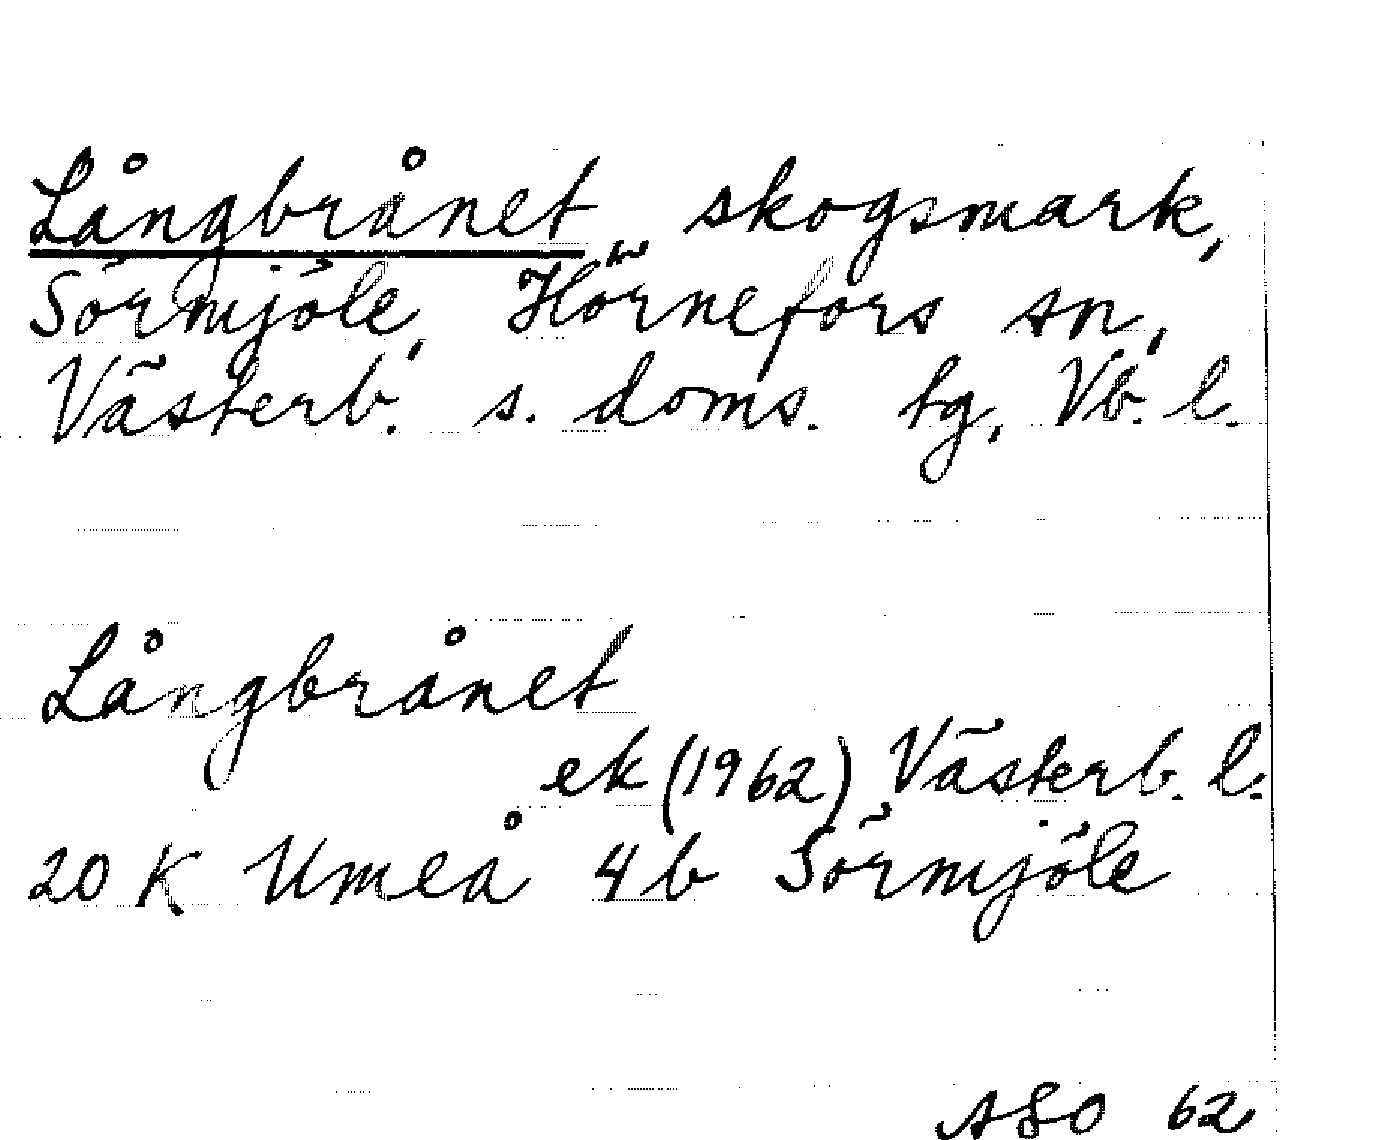 Långbrånet, skogsmark,
Sörmjöle, Hörnefors sn,
Västerb. s. doms. tg, Vb. l.
Långbrånet
ek (1962) Västerb. l.
20 K Umeå 4b Sörmjöle
ASO 62